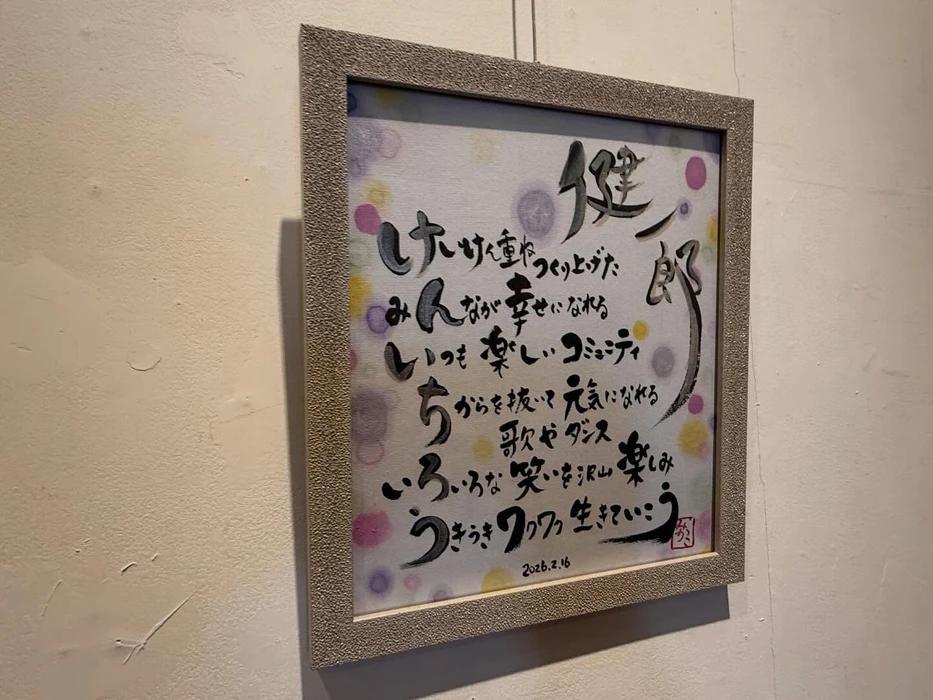 健一郎
けいけん重ねつくり上げた
みんなが幸せになれる
いつも楽しいコミュニティ
ちからを抜いて元気になれる
歌やダンス
いろいろな笑いを沢山楽しみ
うきうきワクワク生きていこう
2026.2.16